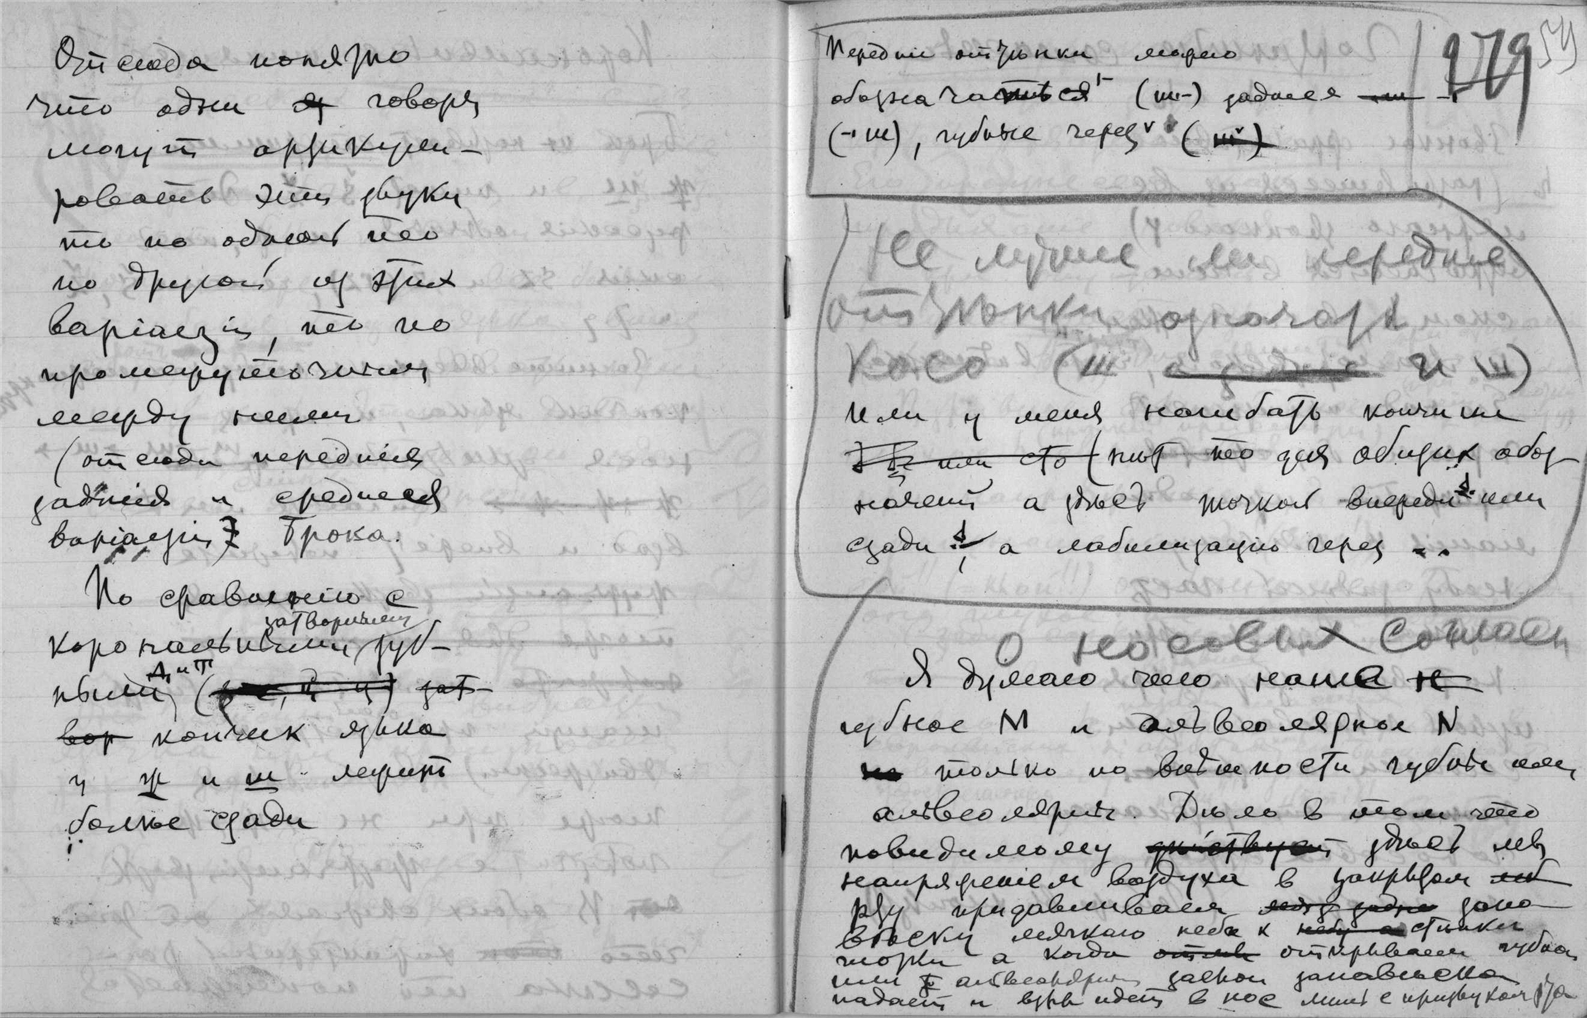 Отсюда понятно
что одни я говоря
могут артикули-
ровать эти звуки
то по одной то
по другой из этих
варіацій, то по
промежуточным
между ними
(отсюда переднія
заднія и среднія
варіаціи Брока.
По сравненію с
корональными зуб-
затворными
ными Д и Т зат-
вор кончик языка
у ж и ш лежит
болѣе сзади
Передніи оттѣнки можно
обозначать (ш-) заднее
(-ш), губные через (ш)
279
54
Не лучше ли передніе
оттѣнки означать
косо (ш и ш)
Или у меня нагибать кончики
или это (нѣт это для общих обоз-
начений а здѣсь точкой впереди или
сзади а лабилизацію через ..
О носовых соглас
Я думаю что наше н
губное М и альвеолярное N
только по видимости губные или
альвеолярн. Дѣло в том что
повидимому здѣсь мы
напряженіем воздуха в закрытом
рту придавливаем зана-
вѣску мягкаго неба к стѣнки
глотки а когда открываем губной
или альвеолярный заслон занавѣска
падает и взрыв идет в нос лишь с призвуком рта